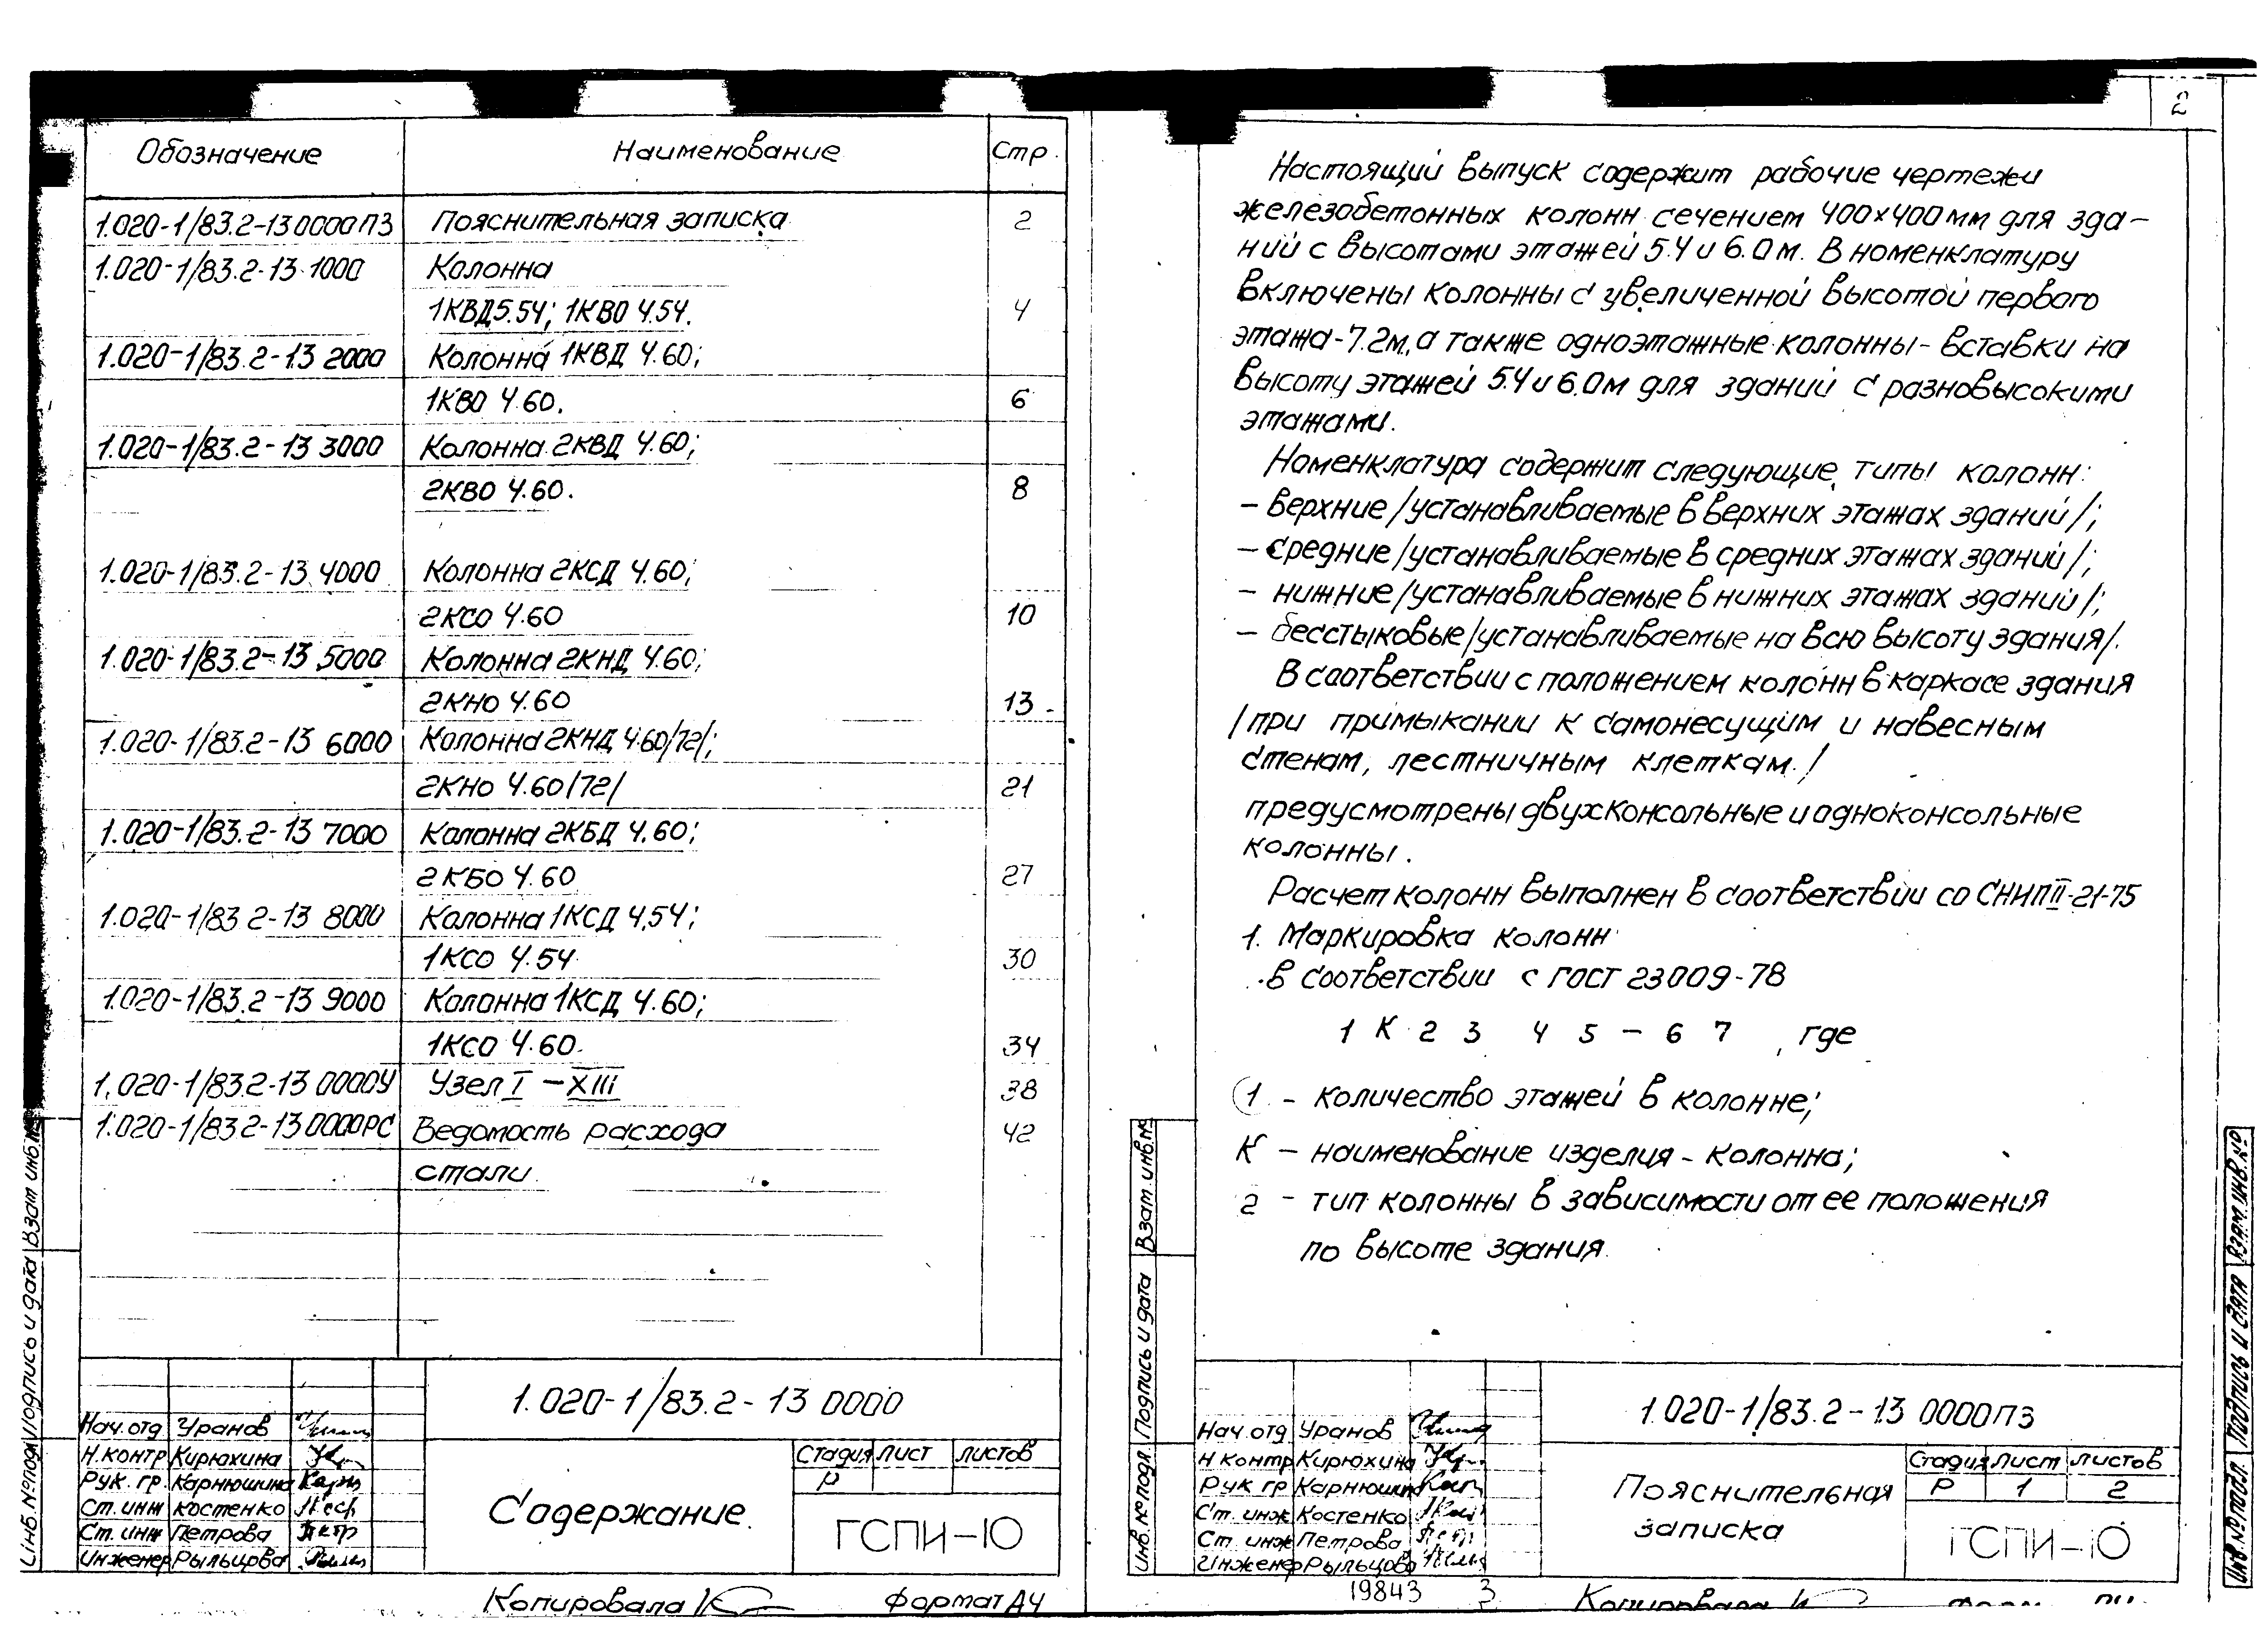 Обозначение Наименование Стр.
1.020-1/83.2-13 0000ПЗ Пояснительная записка 2
1.020-1/83.2-13 1000 Колонна
1КВД5.54; 1КВО 4.54. 4
1.020-1/83.2-13 2000 Колонна 1КВД 4.60;
1КВО 4.60. 6
1.020-1/83.2-13 3000 Колонна 2КВД 4.60;
2КВО 4.60. 8
1.020-1/83.2-13 4000 Колонна 2КСД 4.60;
2КСО 4.60 10
1.020-1/83.2-13 5000 Колонна 2КНД 4.60;
2КНО 4.60 13
1.020-1/83.2-13 6000 Колонна 2КНД 4.60/72/;
2КНО 4.60/72/ 21
1.020-1/83.2-13 7000 Колонна 2КБД 4.60;
2КБО 4.60 27
1.020-1/83.2-13 8000 Колонна 1КСД 4.54;
1КСО 4.54 30
1.020-1/83.2-13 9000 Колонна 1КСД 4.60;
1КСО 4.60. 34
1.020-1/83.2-13 0000У Узел I – XIII 38
1.020-1/83.2-13 0000РС Ведомость расхода 42
стали.
1.020-1/83.2-13 0000
Нач.отд Уранов
Н.контр Кирюхина
Рук. гр. Карнюшина
Ст. инж Костенко
Ст. инж Петрова
Инженер Рыльцова
Содержание.
Стадия Лист Листов
Р
ГСПИ-10
Инв.№подл Подпись и дата Взам инв.№
Копировала Формат А4
2
Настоящий выпуск содержит рабочие чертежи
железобетонных колонн сечением 400×400мм для зда-
ний с высотами этажей 5.4 и 6.0м. В номенклатуру
включены колонны с увеличенной высотой первого
этажа-7.2м, а также одноэтажные колонны-вставки на
высоту этажей 5.4 и 6.0м для зданий с разновысокими
этажами.
Номенклатура содержит следующие типы колонн:
– верхние /устанавливаемые в верхних этажах зданий/;
– средние /устанавливаемые в средних этажах зданий/;
– нижние /устанавливаемые в нижних этажах зданий/;
– бесстыковые /устанавливаемые на всю высоту здания/.
В соответствии с положением колонн в каркасе здания
/при примыкании к самонесущим и навесным
стенам, лестничным клеткам./
предусмотрены двухконсольные и одноконсольные
колонны.
Расчет колонн выполнен в соответствии со СНИПII-21-75
1. Маркировка колонн
в соответствии с ГОСТ 23009-78
1 К 2 3 4 5 – 6 7, где
1 – количество этажей в колонне;
К – наименование изделия – колонна;
2 – тип колонны в зависимости от ее положения
по высоте здания.
1.020-1/83.2-13 0000ПЗ
Нач.отд Уранов
Н контр Кирюхина
Рук гр Карнюшин
Ст. инж Костенко
Ст. инж Петрова
Инженер Рыльцова
Пояснительная
записка
Стадия Лист Листов
Р 1 2
ГСПИ-10
Инв.№подл Подпись и дата Взам инв.№
Инв.№подл. Подпись и дата Взам.инв.№
19843 3
Копировала